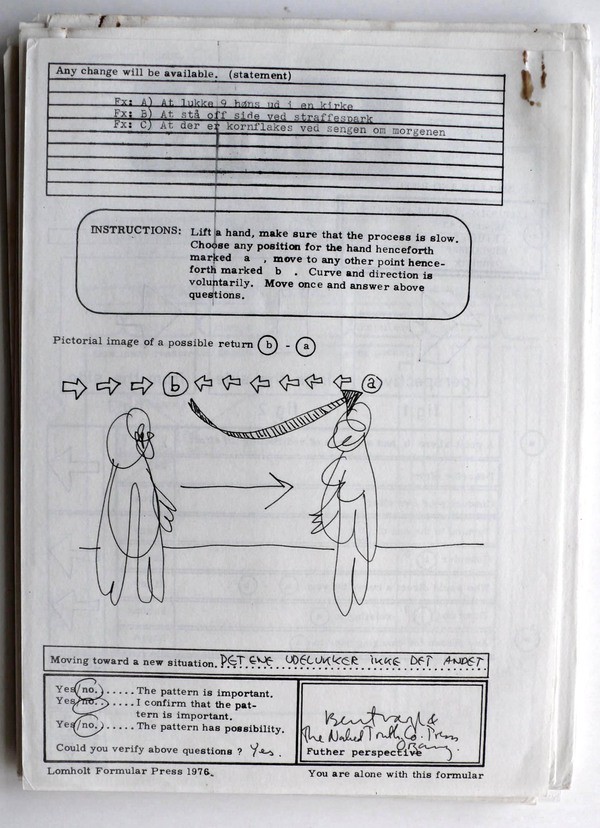 Any change will be available. (statement)
Fx: A) At lukke 9 høns ud i en kirke
Fx: B) At stå off side ved straffespark
Fx: C) At der er kornflakes ved sengen om morgenen
INSTRUCTIONS: Lift a hand, make sure that the process is slow.
Choose any position for the hand henceforth
marked a , move to any other point hence-
forth marked b . Curve and direction is
voluntarily. Move once and answer above
questions.
Pictorial image of a possible return b - a
b a
Moving toward a new situation. DET ENE UDELUKKER IKKE DET ANDET
Yes/no. ..... The pattern is important.
Yes/no. ..... I confirm that the pat-
tern is important.
Yes/no. ..... The pattern has possibility.
Could you verify above questions ? Yes.
The Naked Truth Co. Press
Futher perspective
Lomholt Formular Press 1976.
You are alone with this formular